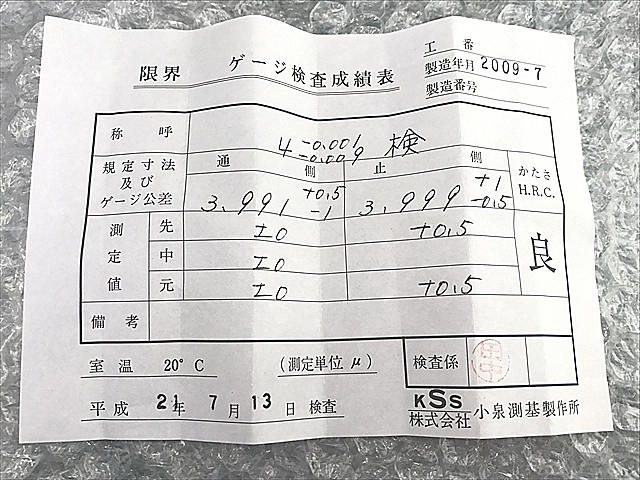 工番
限界 ゲージ検査成績表
製造年月 2009-7
製造番号
称呼 4 -0.001 -0.009 検
規定寸法及びゲージ公差
通側
3.991 +0.5 -1
止側
3.999 +1 -0.5
かたさ H.R.C.
測定値
先 ±0 +0.5
中 ±0
元 ±0 +0.5
良
備考
室温 20°C (測定単位μ)
検査係
平成 21年 7月 13日 検査
KSS
株式会社 小泉測基製作所